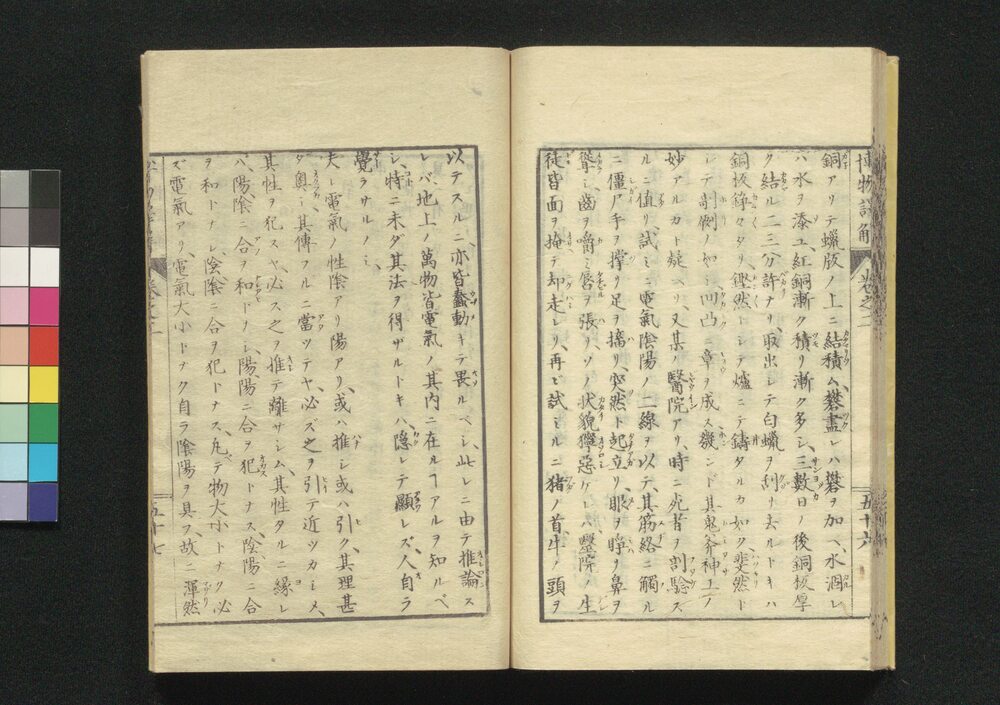 博物語解 巻之二 五十六
銅アリテ蠟版ノ上ニ結積ム、礬盡レハ礬ヲ加ヘ、水涸レ
ハ水ヲ添エ、紅銅漸ク積リ漸ク多シ、三數日ノ後銅板厚
ク結ル二三分許ナリ、取出シテ白蠟ヲ刮リ去ルトキハ
銅板錚々タリ、鏗然トシテ爐ニテ鑄タルカ如ク斐然ト
シテ剞劂ノ如シ、凹凸ニ章ヲ成ス幾ンド其鬼斧神工ノ
妙アルカト疑ヘリ、又某ノ醫院アリ、時ニ死者ヲ剖驗ス
ルニ値リ、試ミニ電氣陰陽ノ二線ヲ以テ、其筋絡ニ觸ル
ニ僵尸手ヲ撑リ足ヲ搐リ、突然ト起立リ、眼ヲ睜リ鼻ヲ
聳シ、齒ヲ嚼ミ唇ヲ張リ、ソノ状貌獰惡ケレハ、醫院ノ生
徒皆面ヲ掩テ却走レリ、再ビ試ミルニ猪ノ首、牛ノ頭ヲ
以テスルニ、亦皆蠢動キテ畏ルベシ、此レニ由テ推論ス
レバ、地上ノ萬物皆電氣ノ其内ニ在ルヿアルヲ知ルベ
シ、特ニ未ダ其法ヲ得ザルトキハ、隱レテ顯レズ、人自ラ
覺ラサルノミ、
夫レ電氣ノ性陰アリ陽アリ、或ハ推シ或ハ引ク、其理甚
ダ奥シ、其傳フルニ當ツテヤ、必ズ之ヲ引テ近ツカシメ、
其性ヲ犯スヤ、必ス之ヲ推テ離サシム、其性タルニ縁レ
ハ、陽、陰ニ合ヲ和トナシ、陽、陽ニ合ヲ犯トナス、陰、陽ニ合
ヲ和トナシ、陰、陰ニ合ヲ犯トナス、凡テ物大小トナク必
ズ電氣アリ、電氣大小トナク自ラ陰陽ヲ具フ、故ニ渾然
五十七